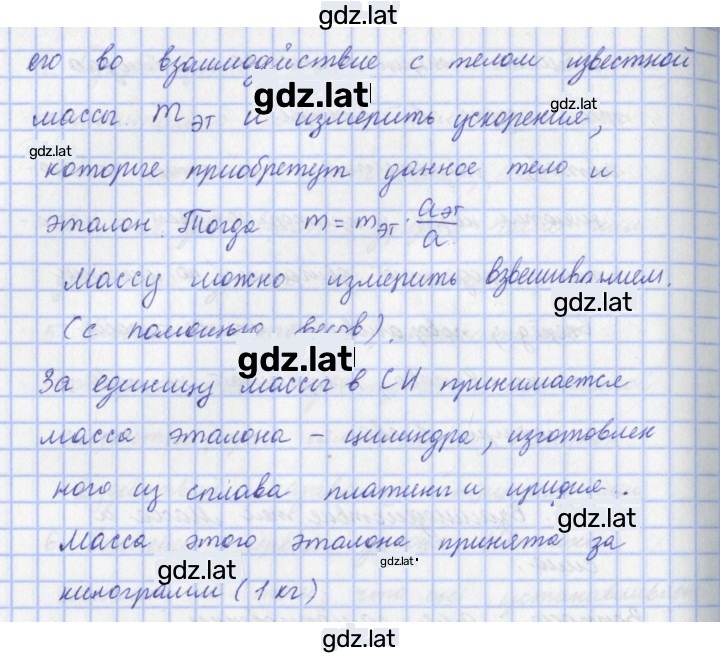 gdz.lat
его во взаимодействие с телом известной
gdz.lat
массы mэт и измерить ускорения,
gdz.lat
gdz.lat
которые приобретут данное тело и
эталон. Тогда m = mэт · aэт/a
Массу можно измерить взвешиванием.
gdz.lat
(с помощью весов).
gdz.lat
За единицу массы в СИ принимается
масса эталона – цилиндра, изготовлен
ного из сплава платины и иридия.
gdz.lat
Масса этого эталона принята за
gdz.lat
gdz.lat
килограмм (1 кг)
gdz.lat